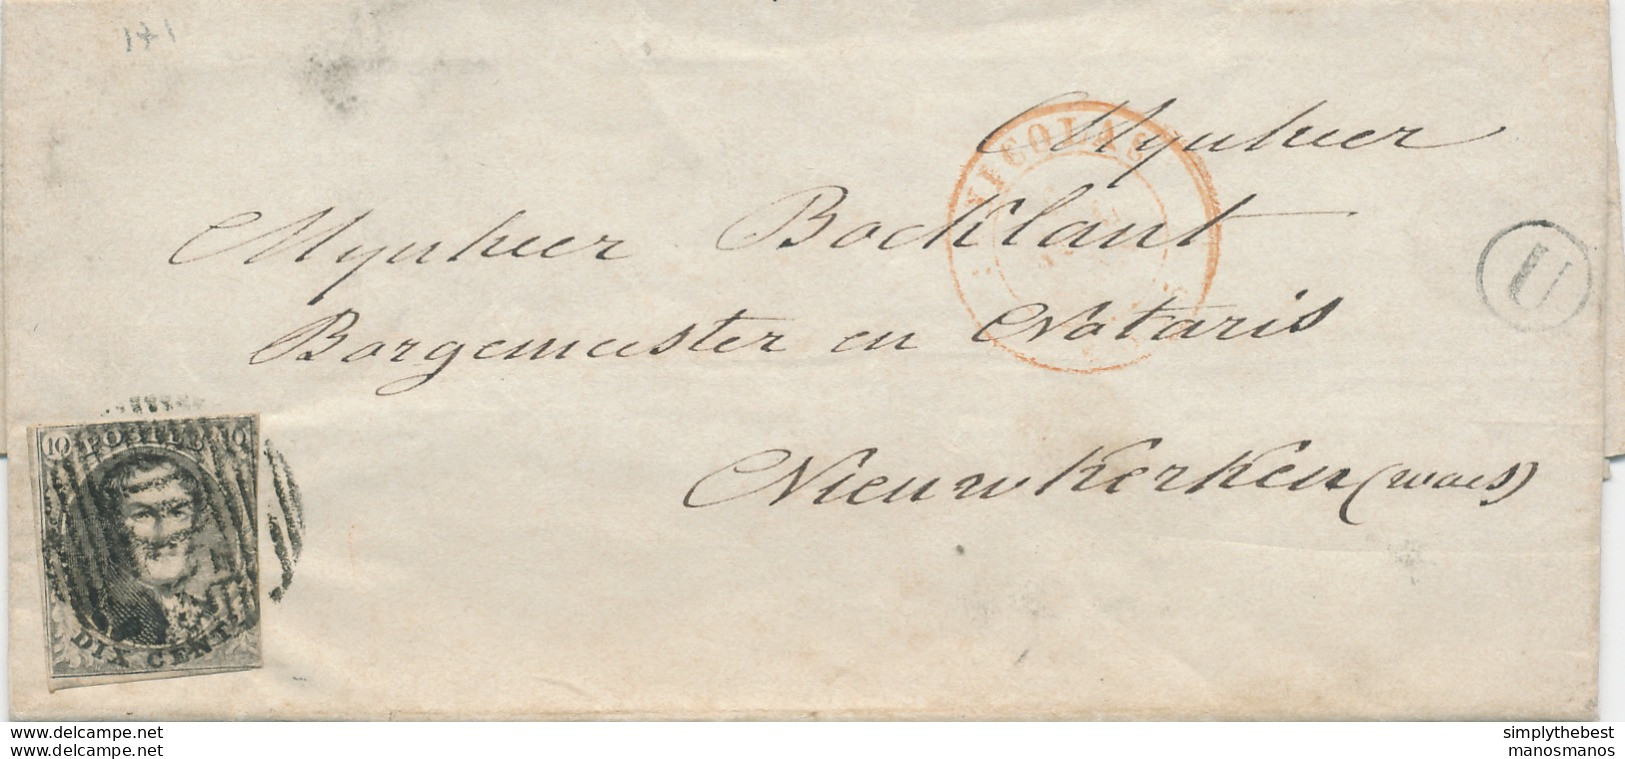 141
NICOLAS
Mynheer
Mynheer Bocklant
U
Borgemeester en Notaris
Nieuwkerken (waes)
10 POSTES 10
DIX CENT.
simplythebest
manosmanos
www.delcampe.net
www.delcampe.net